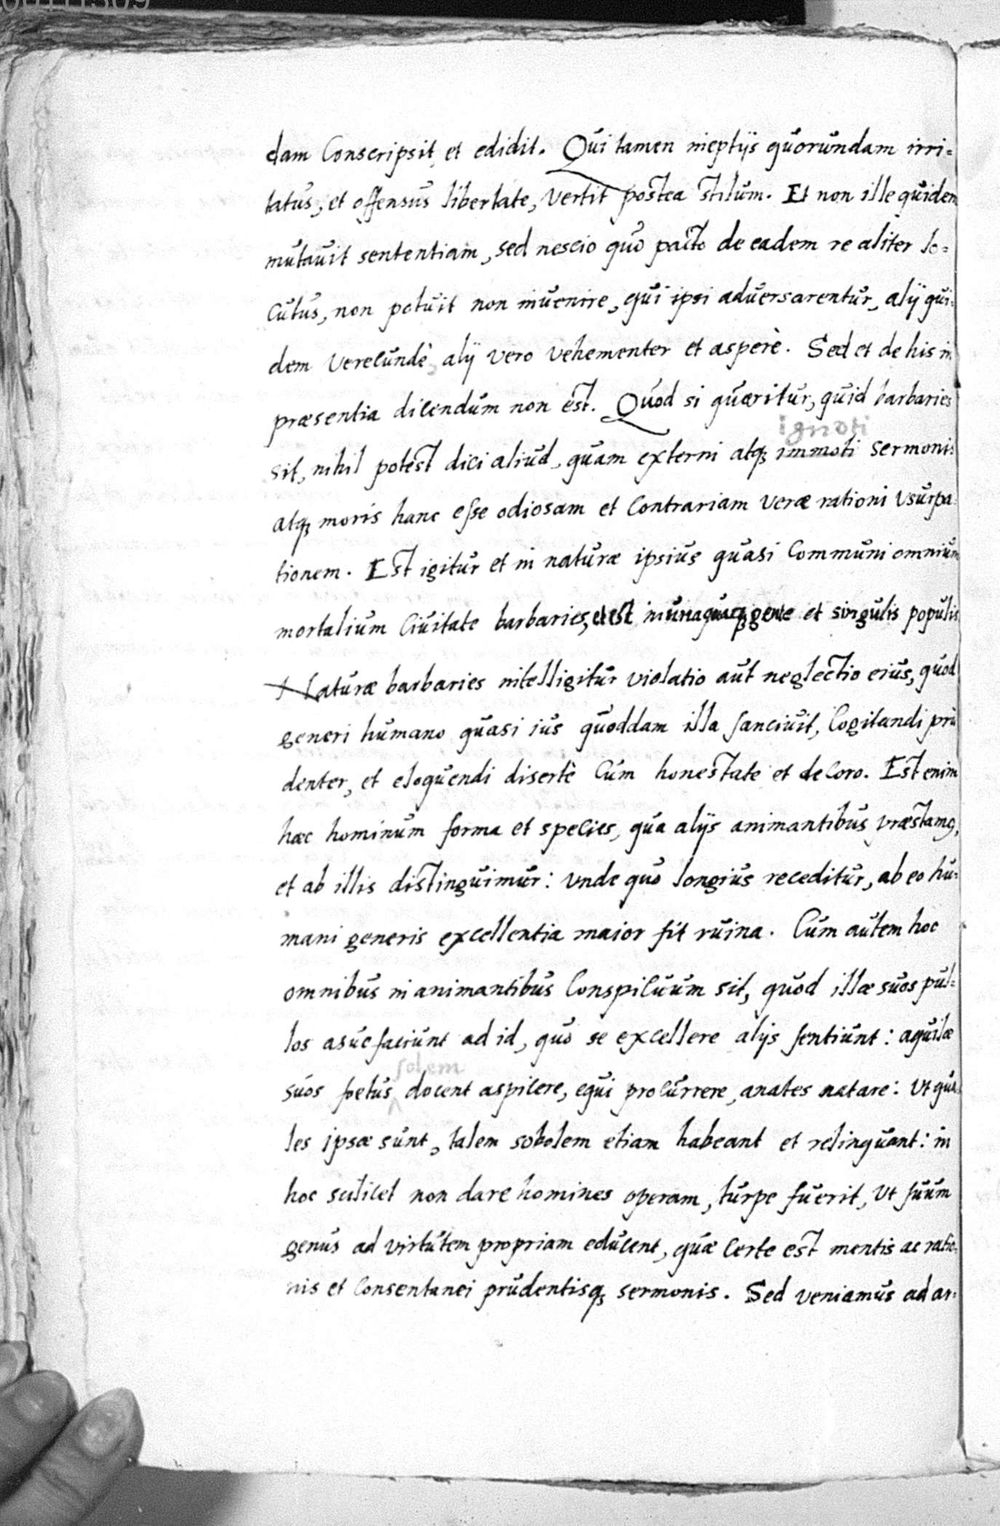 dam conscripsit, et edidit. Qui tamen ineptijs quorundam irri-
tatus, et offensus libertate, vertit postea stilum. Et non ille quidem
mutavit sententiam, sed nescio quo pacto de eadem re aliter lo-
cutus, non potuit non invenire, qui ipsi adversarentur, alij qui-
dem verecundè, alij vero vehementer et asperè. Sed et de his in
præsentia dicendum non est. Quod si quæritur, quid barbaries
ignoti
sit, nihil potest dici aliud, quam externi atq; immoti sermonis
atq; moris hanc esse odiosam et contrariam veræ rationi usurpa-
tionem. Est igitur et in naturæ ipsius quasi communi omnium
mortalium civitate barbaries, et est in unaquaq; gente et singulis populis
Naturæ barbaries intelligitur violatio aut neglectio eius, quod
generi humano quasi ius quoddam illa sancivit, cogitandi pru
denter, et eloquendi disertè cum honestate et decoro. Est enim
hæc hominum forma et species, qua alijs animantibus præstamus,
et ab illis distinguimur: unde quo longius receditur, ab eo hu-
mani generis excellentia maior fit ruina. Cum autem hoc
omnibus in animantibus conspicuum sit, quod illæ suos pul-
los asuefaciunt ad id, quo se excellere alijs sentiunt: aquilæ
solem
suos foetus docent aspicere, equi procurrere, anates natare: ut qua
les ipsæ sunt, talem sobolem etiam habeant et relinquant: in
hoc scilicet non dare homines operam, turpe fuerit, ut suum
genus ad virtutem propriam educent, quæ certe est mentis ac ratio-
nis et consentanei prudentisq; sermonis. Sed veniamus ad ar-